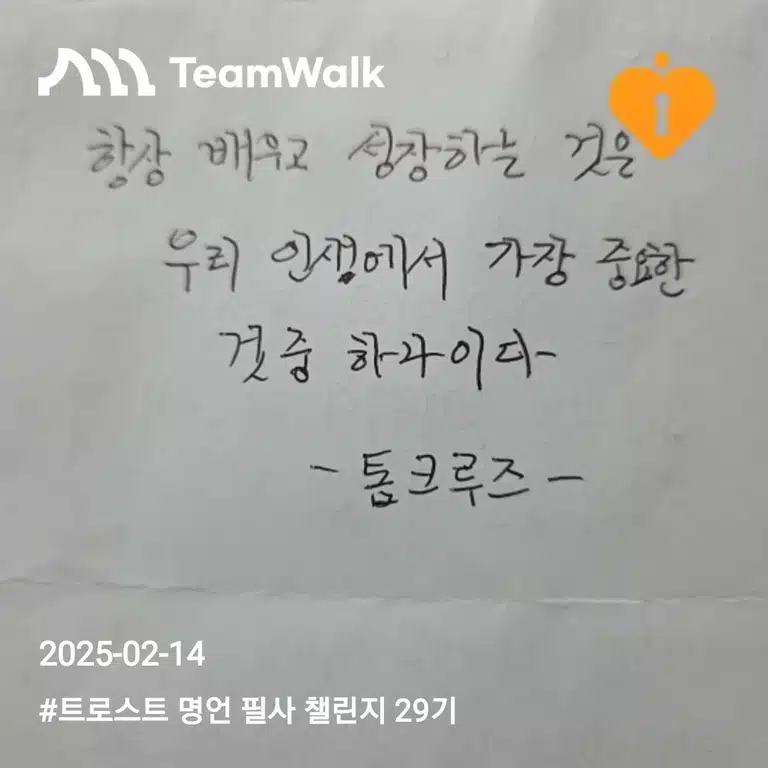 TeamWalk
항상 배우고 성장하는 것은
우리 인생에서 가장 중요한
것 중 하나이다
- 톰크루즈 -
2025-02-14
#트로스트 명언 필사 챌린지 29기